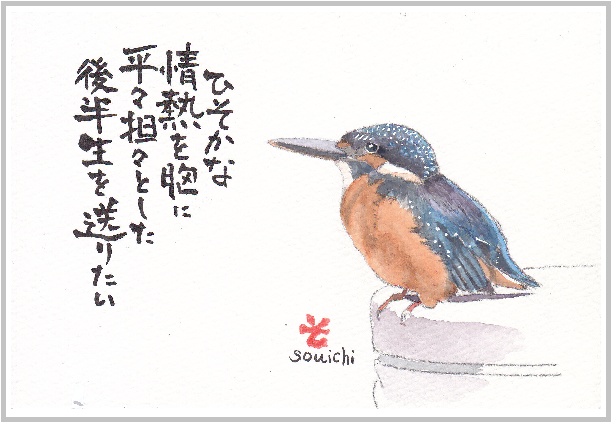 ひそかな
情熱を胸に
平々担々とした
後半生を送りたい
そ
souichi